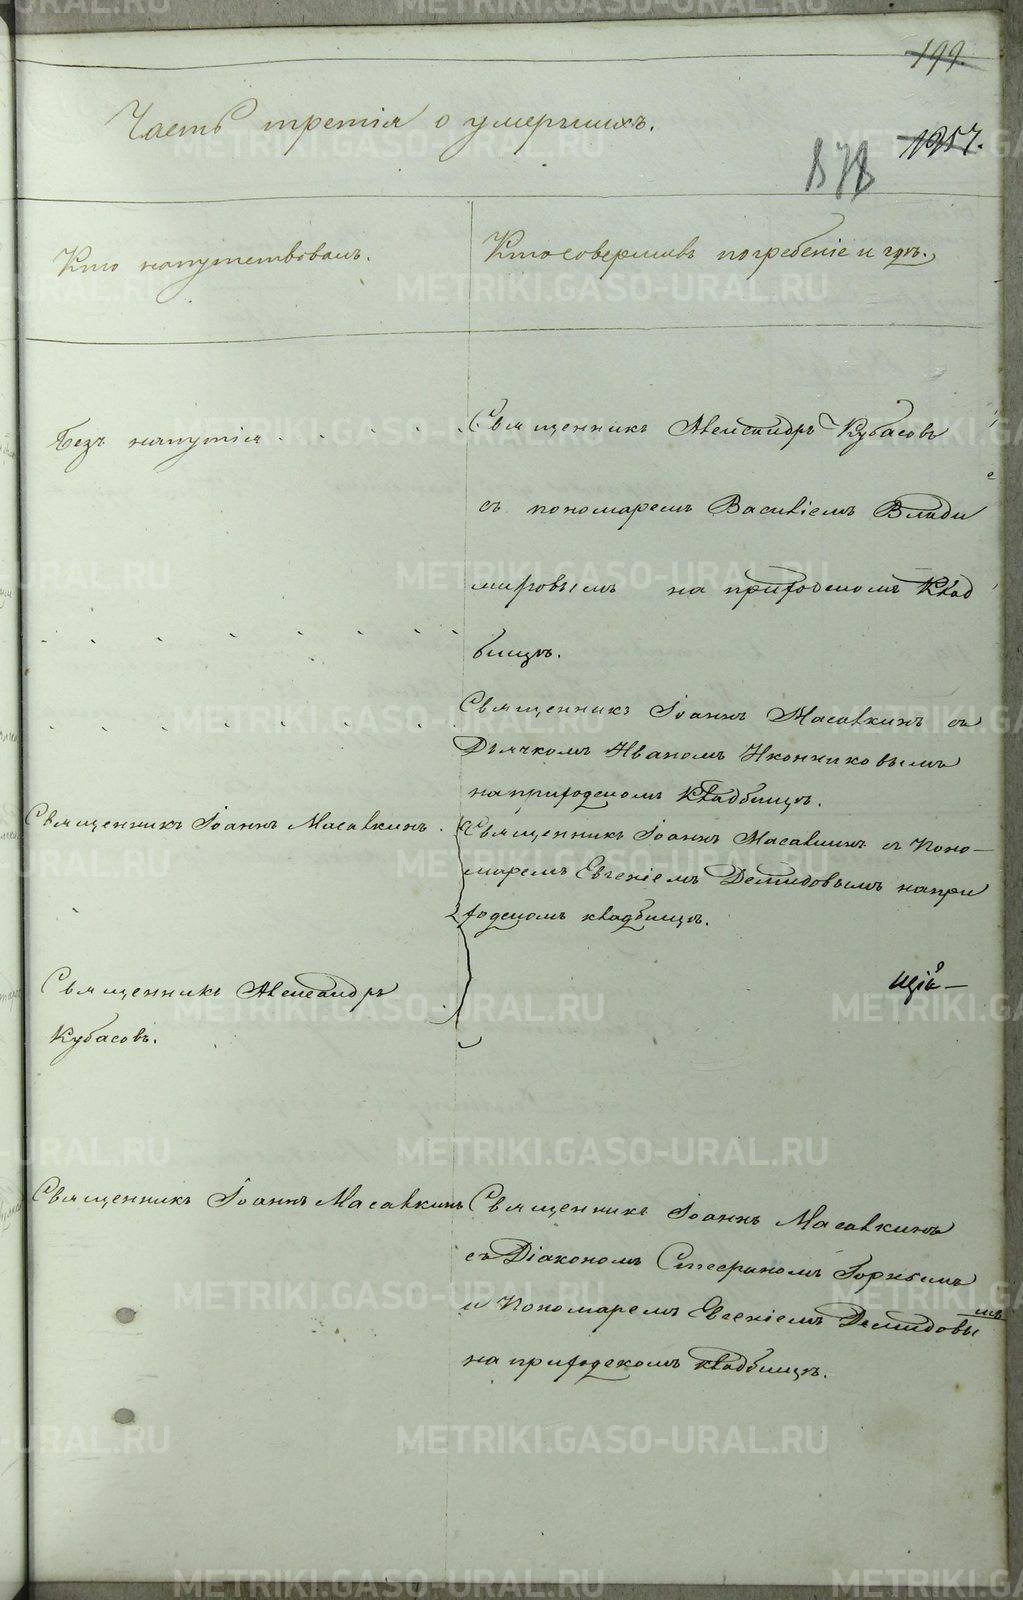 199.
Часть третія о умершихъ.
1957.
Кто напутствовалъ.
Кто совершилъ погребеніе и гдѣ.
Безъ напутія . . . . .
Священникъ Александръ Кубасовъ
съ пономаремъ Василіемъ Влади
мировымъ на приходскомъ клад
бищѣ.
Священникъ Іоаннъ Масалкинъ съ
Дьячкомъ Иваномъ Иконниковымъ
на приходскомъ кладбищѣ.
Священникъ Іоаннъ Масалкинъ.
Священникъ Іоаннъ Масалкинъ съ Поно-
маремъ Евгеніемъ Демидовымъ на при
ходскомъ кладбищѣ.
Священникъ Александръ
Кубасовъ.
щій-
Священникъ Іоаннъ Масалкинъ
Священникъ Іоаннъ Масалкинъ
съ Діакономъ Стефаномъ Горнымъ
и Пономаремъ Евгеніемъ Демидовымъ
на приходскомъ кладбищѣ.
METRIKI.GASO-URAL.RU